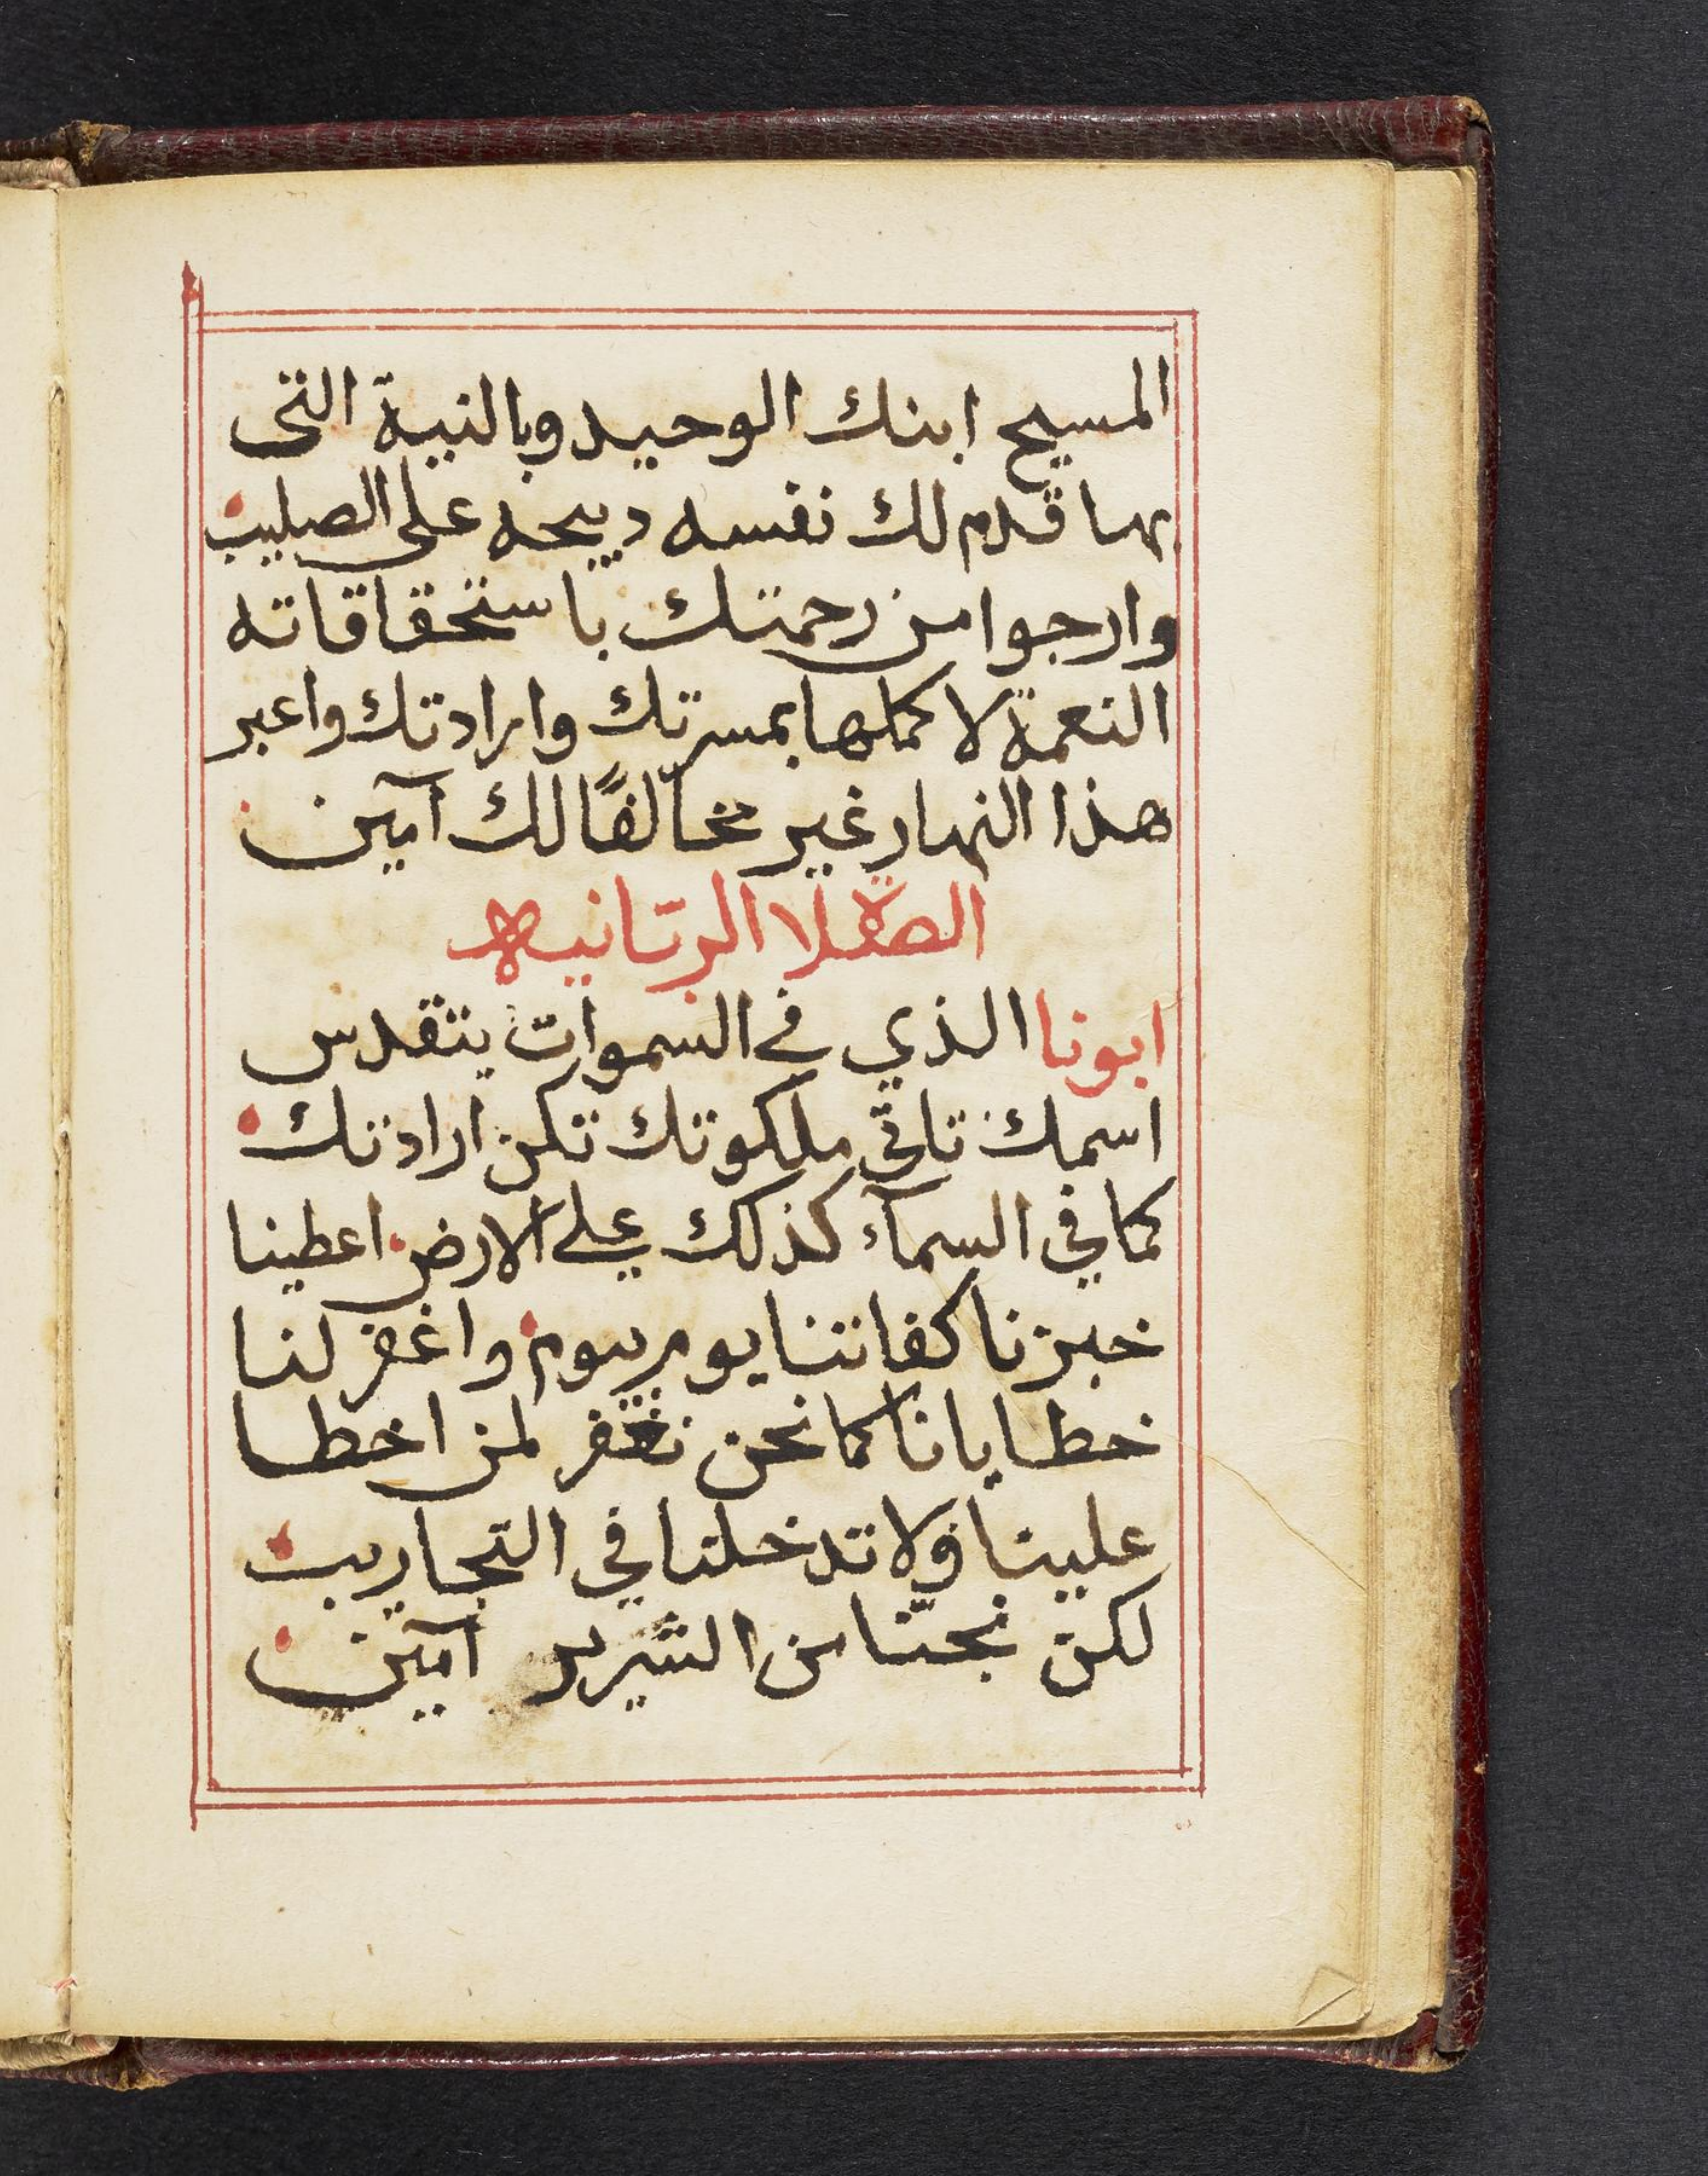 المسيح ابنك الوحيد وبالنية التى
بها قدم لك نفسه دبيحه على الصليب
وارجوا من رحمتك باستحقاقاته
النعمة لاكملها بمسرتك وارادتك واعبر
هذا النهار غير مخالفًا لك آمين
الصلاة الربّانيه
ابونا الذي في السموات يتقدس
اسمك تاتي ملكوتك تكن ارادتك
كما في السمآء كذلك على الارض اعطينا
خبزنا كفاتنا يوم بيوم واغفر لنا
خطايانا كما نحن نغفر لمن اخطا
علينا ولا تدخلنا في التجاريب
لكن نجّنا من الشرير آمين